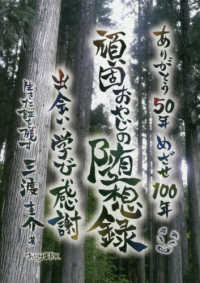 ありがとう50年めざせ100年
頑固おやじの随想録
出会い学び感謝
生きた証を残す
三渡圭介著